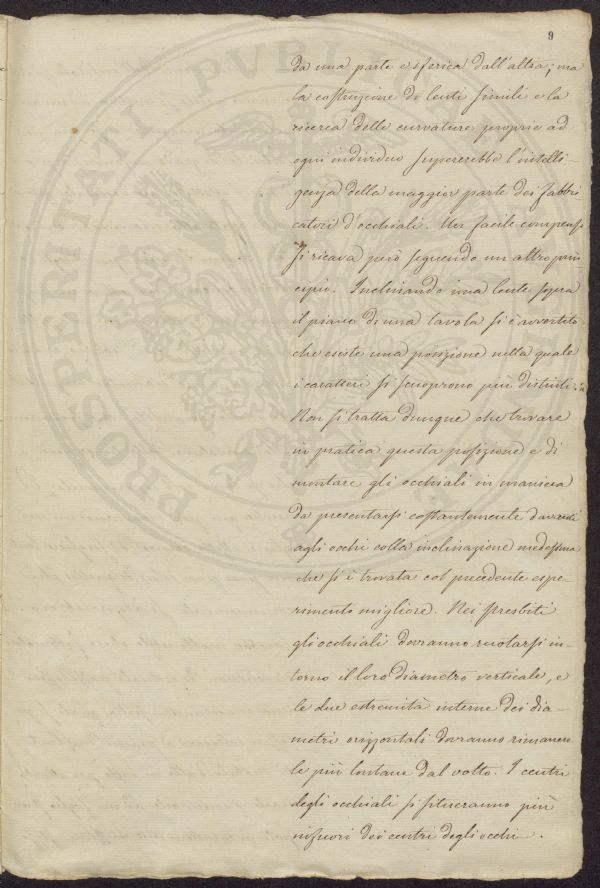 9
da una parte e sferica dall'altra; ma
la costruzione di lenti simili e la
ricerca delle curvature proprie ad
ogni individuo supererebbe l'intelli-
genza della maggior parte dei fabbri
catori d'occhiali. Un facile compenso
si ricava però seguendo un altro prin-
cipio. Inclinando una lente sopra
il piano di una tavola si è avvertito
che esiste una posizione nella quale
i caratteri si scuoprono più distinti.
Non si tratta dunque che trovare
in pratica questa posizione e di
montare gli occhiali in maniera
da presentarsi costantemente davanti
agli occhi colla inclinazione medesima
che si è trovata col precedente espe-
rimento migliore. Nei presbiti
gli occhiali dovranno ruotarsi in-
torno il loro diametro verticale, e
le due estremità interne dei dia-
metri orizzontali dovranno rimanere
le più lontane dal volto. I centri
degli occhiali si situeranno più
infuori dei centri degli occhi.
PROSPERITATI PVBLI